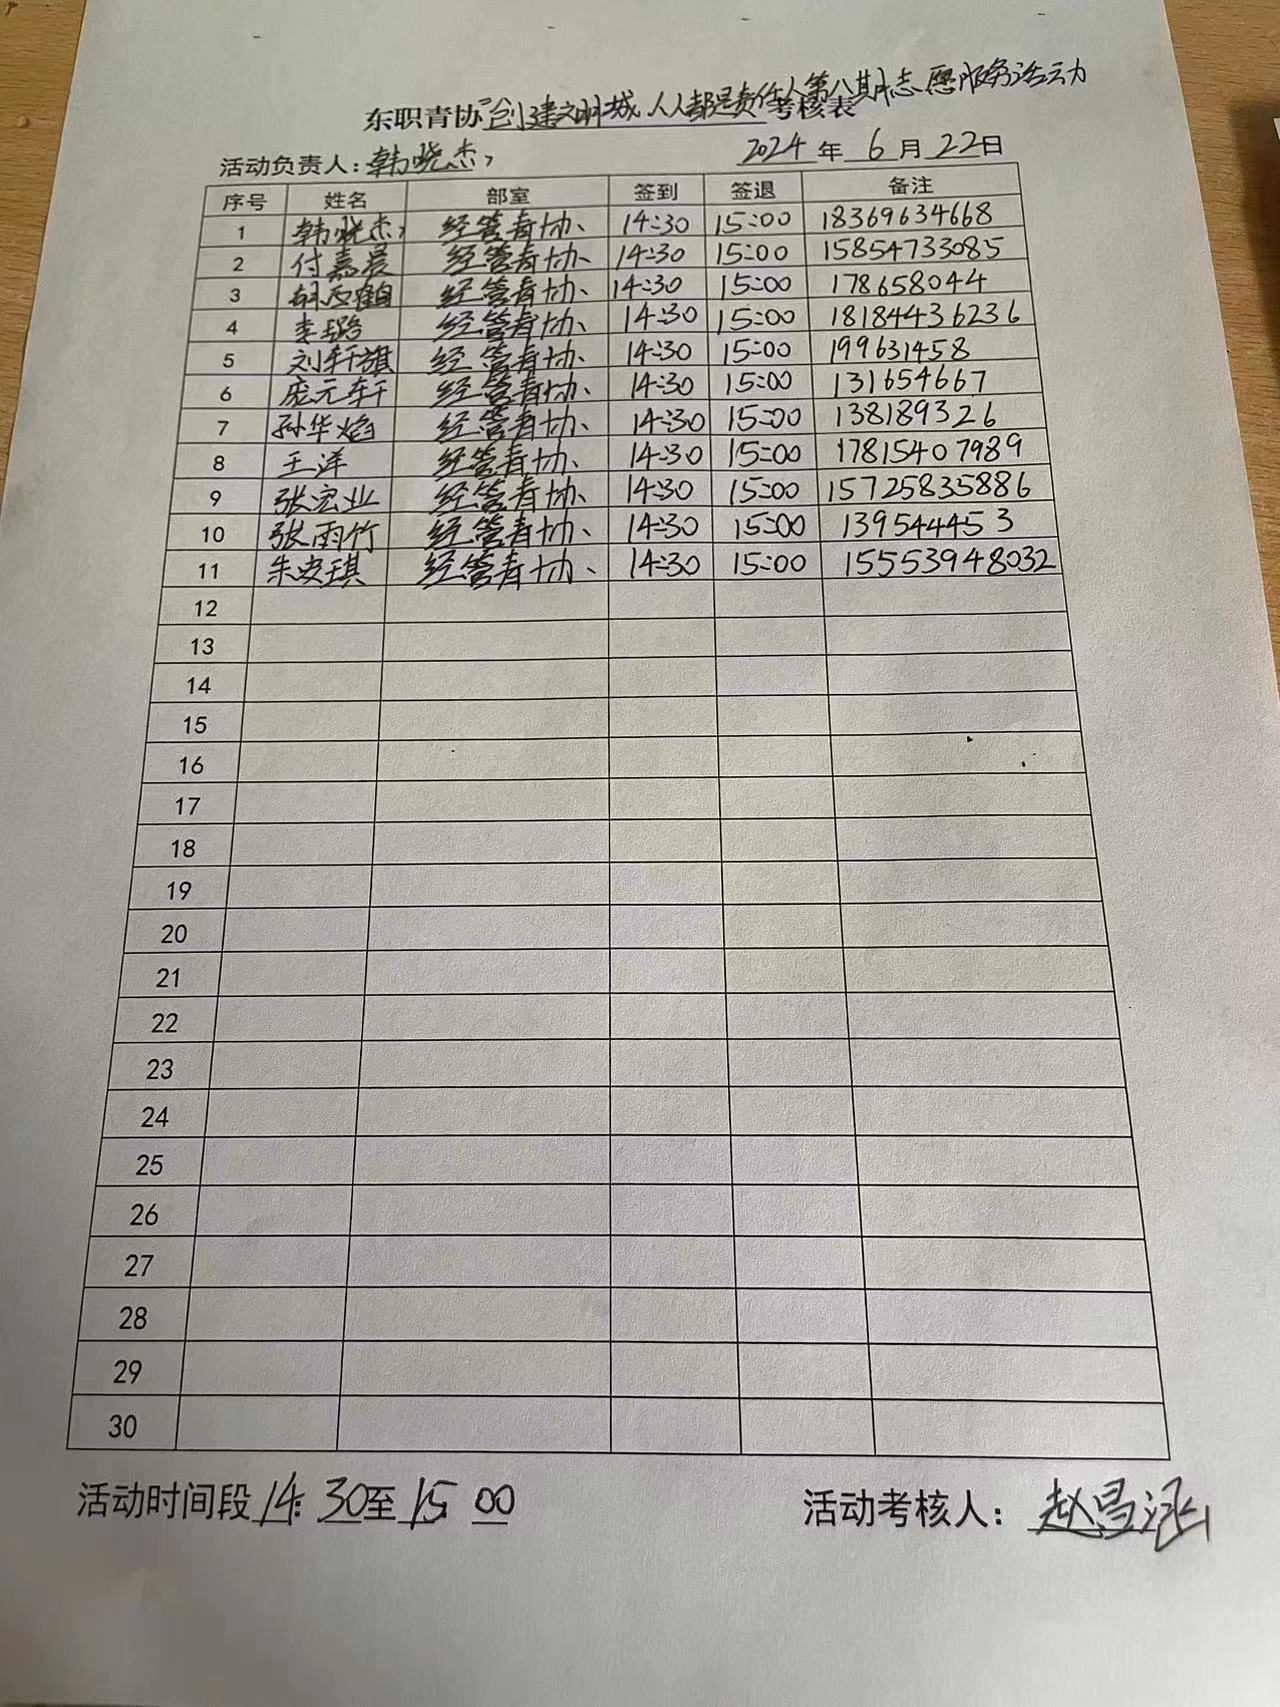 东职青协"创建文明城,人人都是责任人第八期志愿服务活动 考核表
活动负责人:韩晓杰 2024 年 6 月 22日
序号 姓名 部室 签到 签退 备注
1 韩晓杰 经管青协 14:30 15:00 18369634668
2 付嘉晨 经管青协 14:30 15:00 15854733085
3 经管青协 14:30 15:00 178658044
4 李璐 经管青协 14:30 15:00 18184436236
5 刘轩旗 经管青协 14:30 15:00 199631458
6 庞元轩 经管青协 14:30 15:00 131654667
7 孙华焰 经管青协 14:30 15:00 138189326
8 王洋 经管青协 14:30 15:00 17815407989
9 张宏业 经管青协 14:30 15:00 15725835886
10 张雨竹 经管青协 14:30 15:00 139544453
11 朱安琪 经管青协 14:30 15:00 15553948032
12
13
14
15
16
17
18
19
20
21
22
23
24
25
26
27
28
29
30
活动时间段 14:30至 15 00 活动考核人:赵昌涵